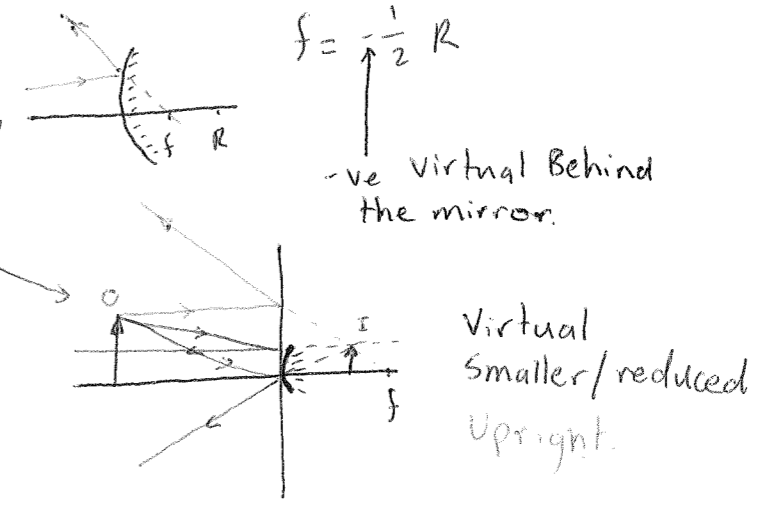 f = - 1/2 R
f R
-ve Virtual Behind
the mirror.
O
I
f
Virtual
Smaller/reduced
Upright.